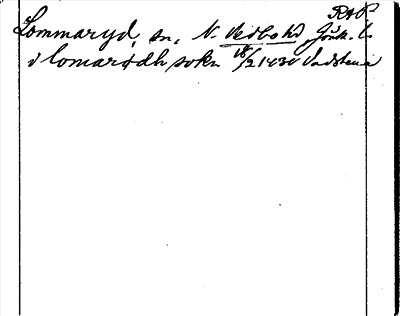 RAP
Lommaryd, sn, N. Vedbo hd, Jönk. l.
i lomarydh sokn 18/2 1430 Vadstena